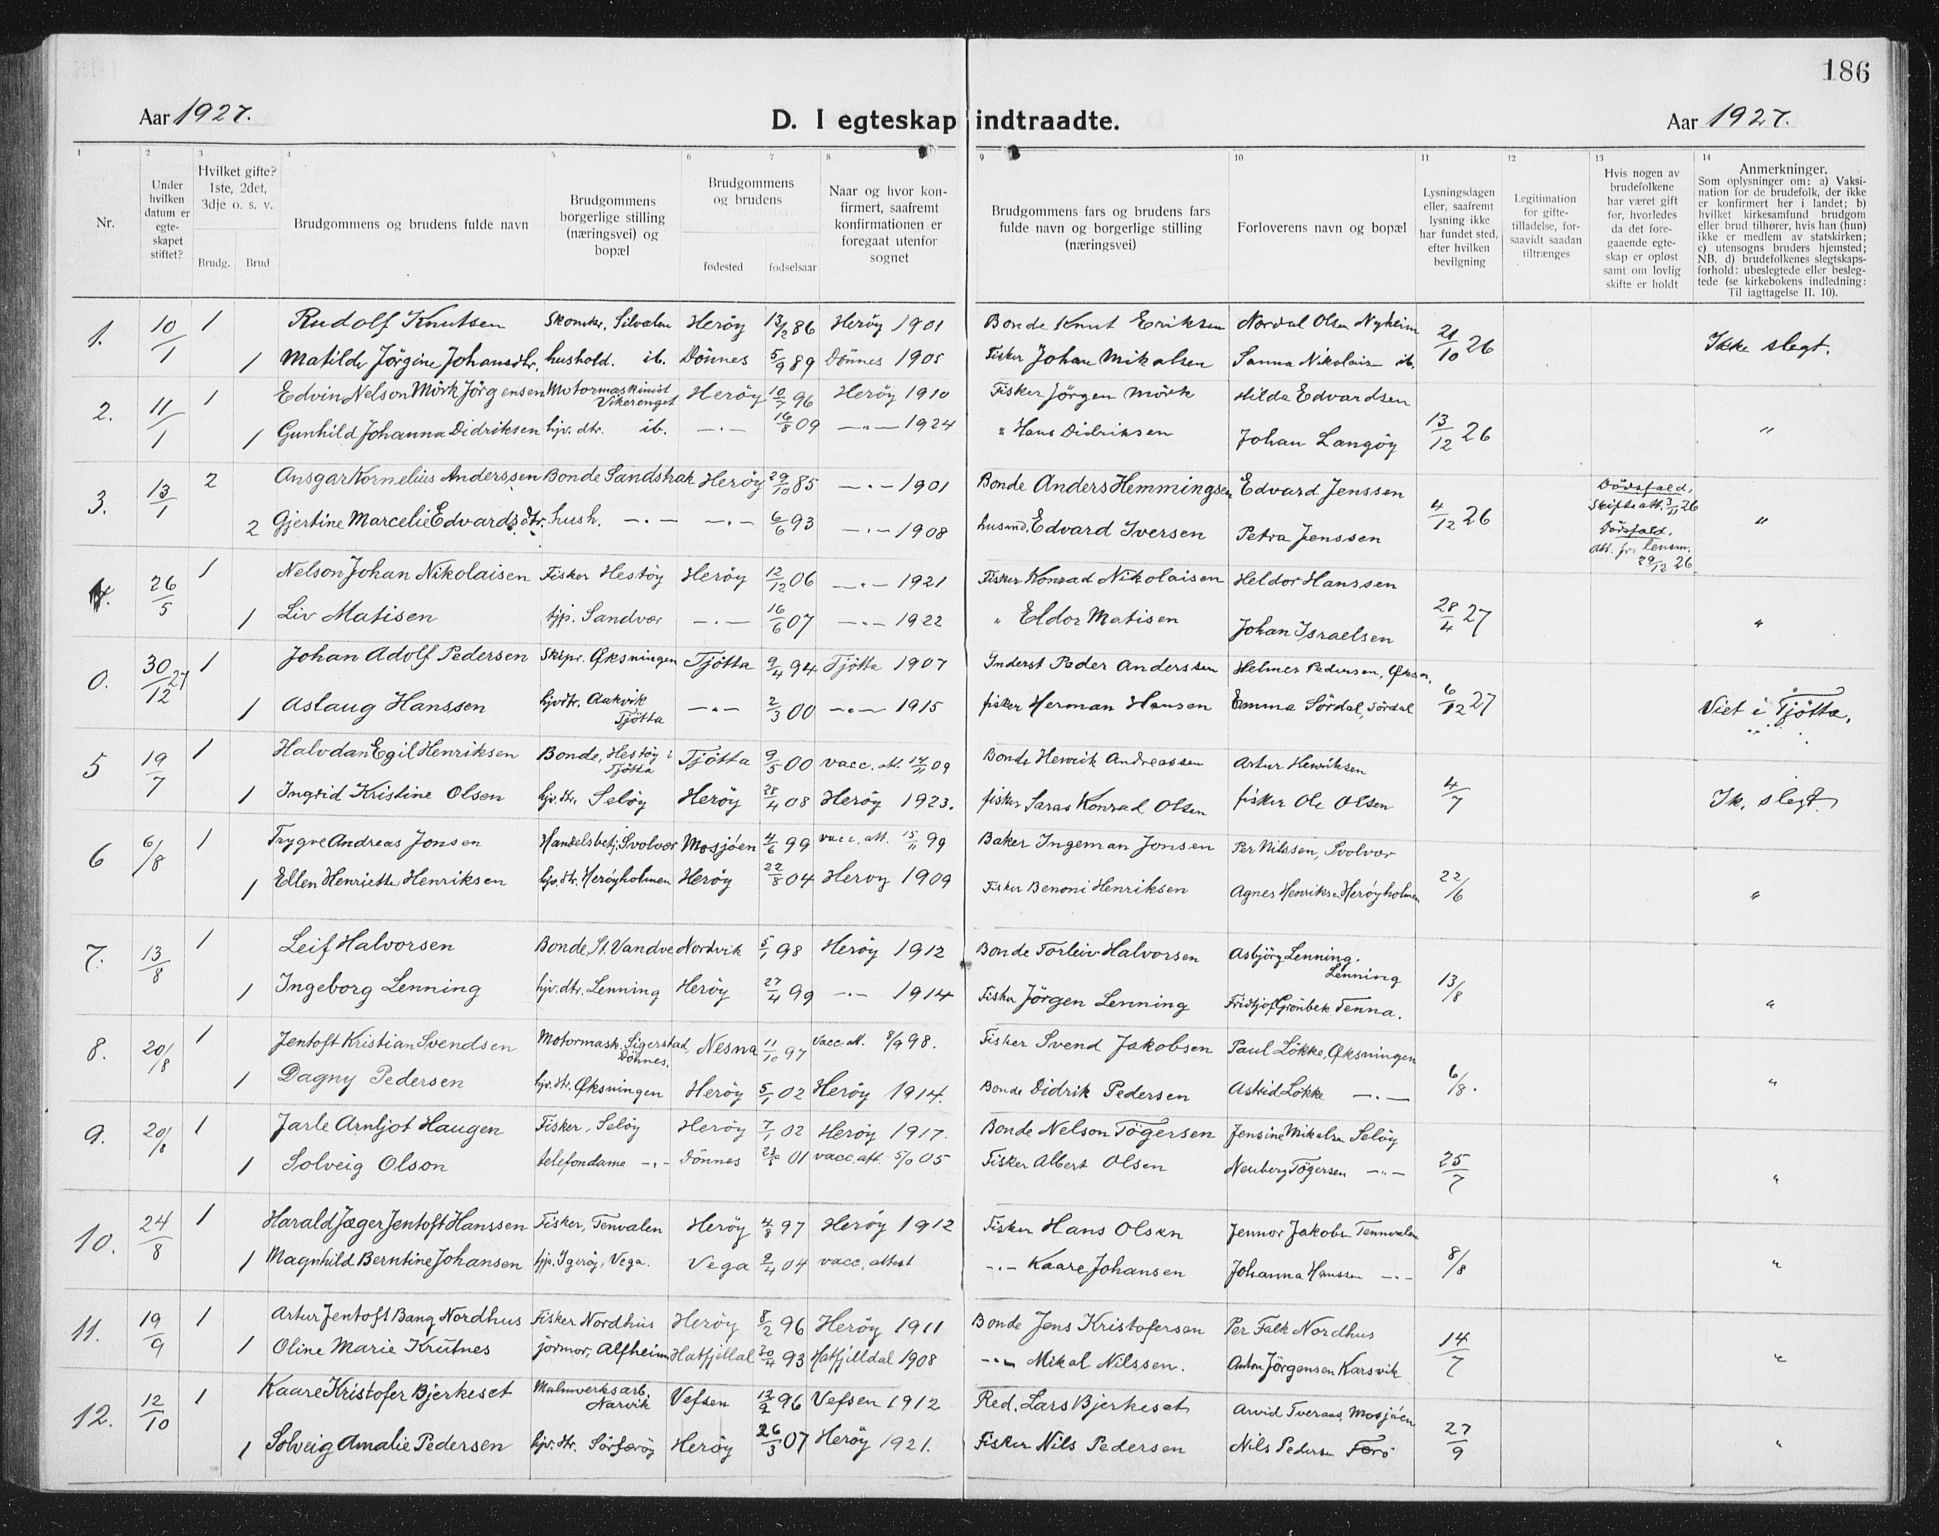 186
Aar 1927.
D. I egteskap indtraadte.
Aar 1927.
1 2 3 4 5 6 7 8 9 10 11 12 13 14
Nr.
Under hvilken datum er egte-skapet stiftet?
Hvilket gifte? 1ste, 2det, 3dje o. s. v.
Brudg. Brud
Brudgommens og brudens fulde navn
Brudgommens borgerlige stilling (næringsvei) og bopæl
Brudgommens og brudens
fødested fødselsaar
Naar og hvor kon-firmert, saafremt konfirmationen er foregaat utenfor sognet
Brudgommens fars og brudens fars fulde navn og borgerlige stilling (næringsvei)
Forloverens navn og bopæl
Lysningsdagen eller, saafremt lysning ikke har fundet sted, efter hvilken bevilgning
Legitimation for gifte-tilladelse, for-saavidt saadan tiltrænges
Hvis nogen av brudefolkene har været gift før, hvorledes da det fore-gaaende egte-skap er opløst samt om lovlig skifte er holdt
Anmerkninger.
Som oplysninger om: a) Vaksi-nation for de brudefolk, der ikke er konfirmert her i landet; b) hvilket kirkesamfund brudgom eller brud tilhører, hvis han (hun) ikke er medlem av statskirken; c) utensogns bruders hjemsted; NB. d) brudefolkenes slegtskaps-forhold: ubeslegtede eller besleg-tede (se kirkebokens indledning: Til iagttagelse II. 10).
1. 10/1 1 Rudolf Knutsen Skomker, Silvalen Herøy 13/2 86 Herøy 1901 Bonde Knut Eriksen Nordal Olsen Nyheim 21/10 26 Ikke slegt.
1 Matilde Jørgine Johansdtr. hushold. ib. Dønnes 5/9 89 Dønnes 1905 Fisker Johan Mikalsen Sanna Nikolais ib.
2. 11/1 1 Edvin Nelson Mörk Jörgensen Motormaskinist Vikerenget Herøy 10/7 96 Herøy 1910 Fisker Jørgen Mörk Hilda Edvardsen 13/12 26 "
1 Gunhild Johanna Didriksen hjv. dtr. ib. -"- 16/8 09 -"- 1924 " Hans Didriksen Johan Langøy
3. 13/1 2 Ansgar Kornelius Anderssen Bonde Sandshak Herøy 29/10 85 -"- 1901 Bonde Anders Hemmingsen Edvard Jenssen 4/12 26 Dödsfald, Skifteatt. 3/11 26 "
2 Gjertine Marcelie Edvardsdtr. hush. -"- -"- 6/6 93 -"- 1908 husmd. Edvard Iversen Petra Jenssen Dödsfald. Att. fr. lensm. 29/12 26
4. 26/5 1 Nelson Johan Nikolaisen Fisker Hestöy Herøy 12/12 06 -"- 1921 Fisker Konrad Nikolaisen Heldor Hanssen 28/4 27 "
1 Liv Matisen tjp. Sandvær -"- 16/6 07 -"- 1922 " Eldor Matisen Johan Israelsen
0. 30/12 27 1 Johan Adolf Pedersen Skspr. Øksningen Tjötta 9/4 94 Tjötta 1907 Inderst Peder Anderssen Helmer Pedersen, Øksn. 6/12 27 Viet i Tjötta.
1 Aslaug Hanssen hjvdtr. Aakvik Tjötta -"- 2/3 00 -"- 1915 fisker Herman Hansen Emma Sördal, Sördal
5 19/7 1 Halvdan Egil Henriksen Bonde, Hestøy i Tjötta Tjötta 9/5 00 vacc. att. 14/11 09 Bonde Henrik Andreassen Artur Henriksen 4/7 Ik. slegt
1 Ingrid Kristine Olsen hjv. dtr. Seløy Herøy 28/4 08 Herøy 1923. fisker Saras Konrad Olsen fisker Ole Olsen
6 6/8 1 Trygve Andreas Jonsen Handelsbetj. Svolvær Mosjøen 4/6 99 vacc. att. 15/11 99 Baker Ingeman Jonsen Per Nilssen, Svolvær 22/6 "
1 Ellen Henriette Henriksen hjv. dtr. Herøyholmen Herøy 22/8 04 Herøy 1909 Fisker Benoni Henriksen Agnes Henriksen Herøyholmen
7. 13/8 1 Leif Halvorsen Bonde, St. Vandve Nordvik 5/1 98 Herøy 1912 Bonde Torleiv Halvorsen Asbjörg Lenning. Lenning 13/8 "
1 Ingeborg Lenning hjv. dtr. Lenning Herøy 27/4 99 -"- 1914 Fisker Jörgen Lenning Fridtjof Grönbek Tenna.
8. 20/8 1 Jentoft Kristian Svendsen Motormask. Sigerstad, Dönnes. Nesna 11/10 97 Vacc. att. 8/9 98. Fisker Svend Jakobsen Paul Lökke, Øksningen 6/8. "
1 Dagny Pedersen hjv. dtr. Øksningen Herøy 5/1 02 Herøy 1914. Bonde Didrik Pedersen Astrid Lökke -"-
9. 20/8 1 Jarle Arnljot Haugen Fisker, Seløy Herøy 7/1 02 Herøy 1917. Bonde Nelson Tögersen Jensine Mikalsn Seløy 25/7 "
1 Solveig Olson telefondame -"- Dönnes 01 vacc. att. 05 Fisker Albert Olsen Neuberg Tögersen -"-
10. 24/8 1 Harald Jæger Jentoft Hanssen Fisker, Tenvalen Herøy 4/8 97 Herøy 1912 Fisker Hans Olsen Jennor Jakobsn Tennvalen 8/8 "
1 Magnhild Berntine Johansen tjp. Igerøy, Vega. Vega 9/4 04 vacc. attest -"- Kaare Johansen Johanna Hanssen -"-
11. 19/9 1 Artur Jentoft Bang Nordhus Fisker Nordhus Herøy 8/2 96 Herøy 1911 Bonde Jens Kristofersen Per Falk Nordhus 14/7 "
1 Oline Marie Krutnes jordmor, Alfheim Hatfjelldal 20/4 93 Hatfjelldal 1908 -"- Mikal Nilssen. Anton Jörgensen Karsvik
12. 12/10 1 Kaare Kristofer Bjerkeset Malmverksarb. Narvik Vefsen 13/2 96 Vefsen 1912 Red. Lars Bjerkeset Arvid Tveraas, Mosjøen 27/9 "
1 Solveig Amalie Pedersen hjv. dtr. Sörfærøy Herøy 26/3 07 Herøy 1921. Fisker Nils Pedersen Nils Pedersen Færø